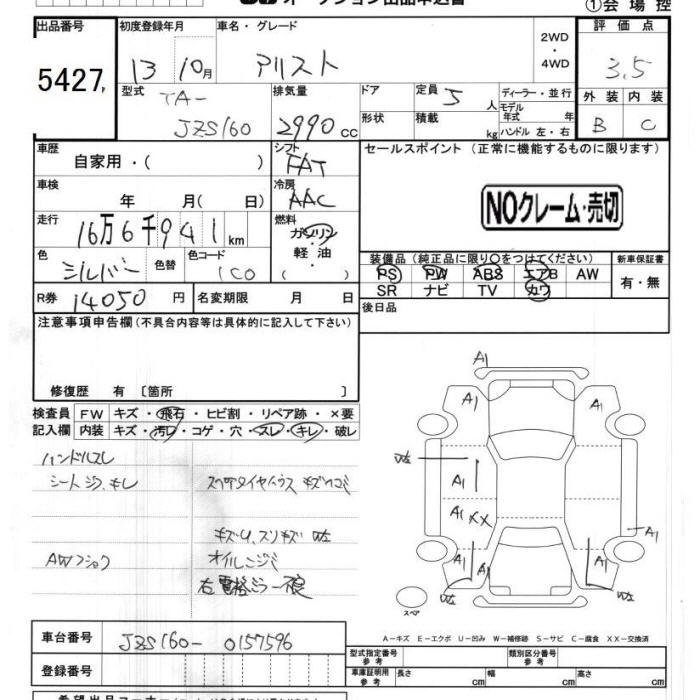 オークション出品申込書
①会場控
出品番号 初度登録年月 車名・グレード 評価点
5427 13 10月 アリスト 2WD・4WD 3.5
型式 排気量 ドア 定員 5人 ディーラー・並行 外装 内装
TA- モデル年式 年
JZS160 2990cc 形状 積載 kg ハンドル 左・右 B C
車歴 シフト セールスポイント (正常に機能するものに限ります)
自家用・( ) FAT
車検 冷房
年 月( 日) AAC NOクレーム・売切
走行 燃料
16万6千941km ガソリン・軽油・( )
色 色替 色コード 装備品(純正品に限り○をつけてください) 新車保証書
シルバー 1C0 PS PW ABS エアB AW 有・無
SR ナビ TV カワ
R券 14050円 名変期限 月 日 後日品
注意事項申告欄(不具合内容等は具体的に記入して下さい)
修復歴 有 〔箇所 〕
検査員 FW キズ・飛石・ヒビ割・リペア跡・×要
記入欄 内装 キズ・汚レ・コゲ・穴・スレ・キレ・破レ
ハンドルスレ
シートシワ、キレ スペアタイヤハウス キズ凹ミ
AWフショク オイルニジミ
右電格ミラー不良
A1
A1 A1
A1
A1 XX
A1
A1 A1
スペア
A-キズ E-エクボ U-凹み W-補修跡 S-サビ C-腐食 XX-交換済
車台番号 JZS160-0157596
型式指定番号 参考 類別区分番号 参考
登録番号 車庫証明用 参考 長さ cm 幅 cm 高さ cm